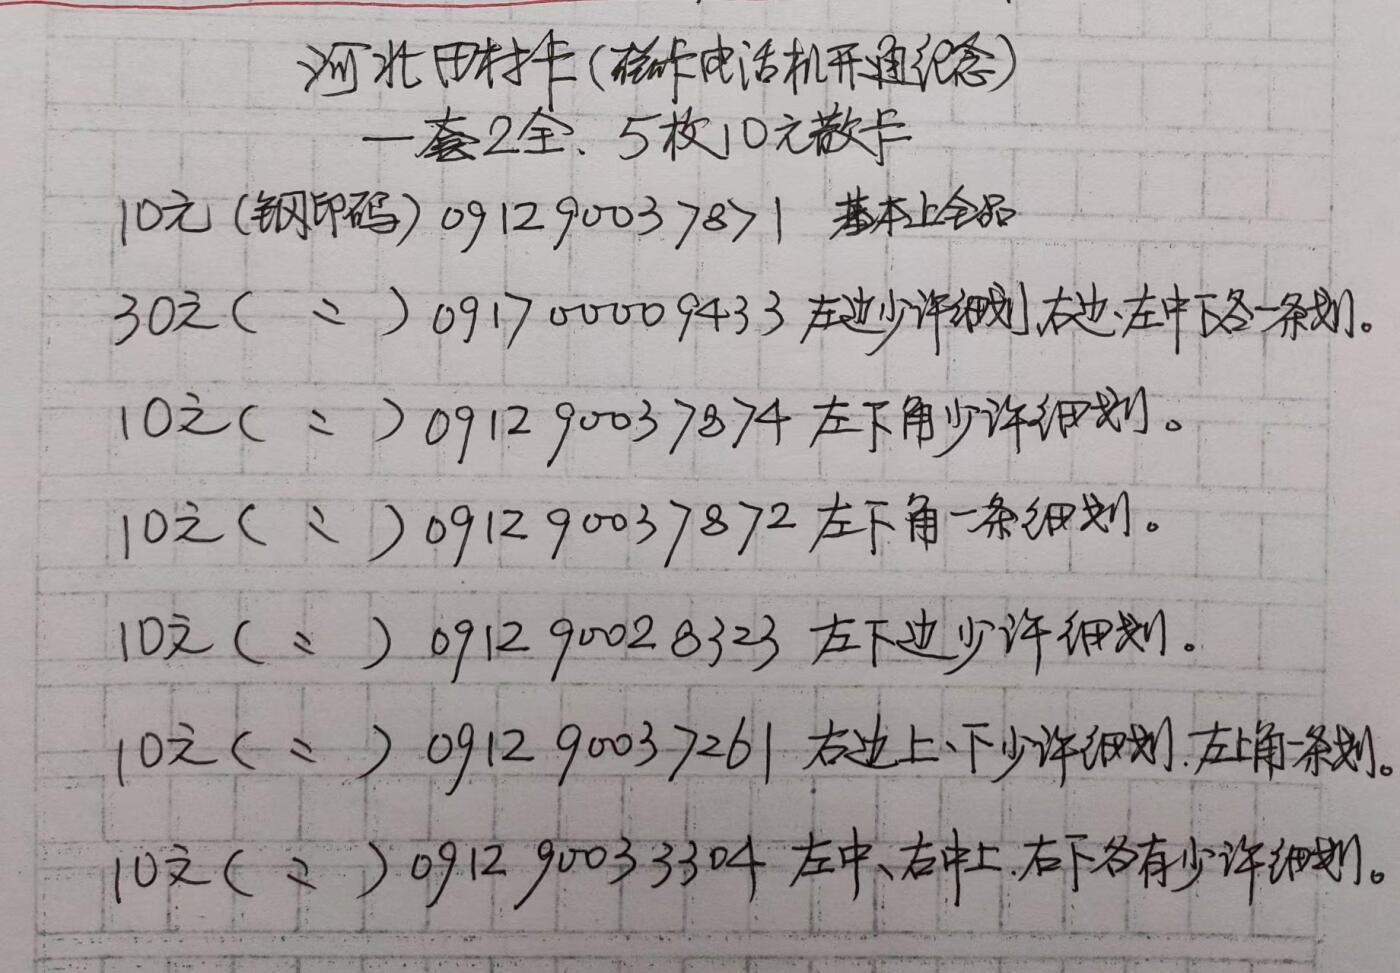 河北田村卡(磁卡电话机开通纪念)
一套2全、5枚10元散卡
10元(钢印码)091290037871 基本上全品
30元(〃)0917000009433 左边少许细划、右边、左中下各一条划。
10元(〃)091290037874 左下角少许细划。
10元(〃)091290037872 左下角一条细划。
10元(〃)091290028323 左下边少许细划。
10元(〃)091290037261 右边上、下少许细划.左上角一条划。
10元(〃)091290033304 左中、右中上.右下各有少许细划。